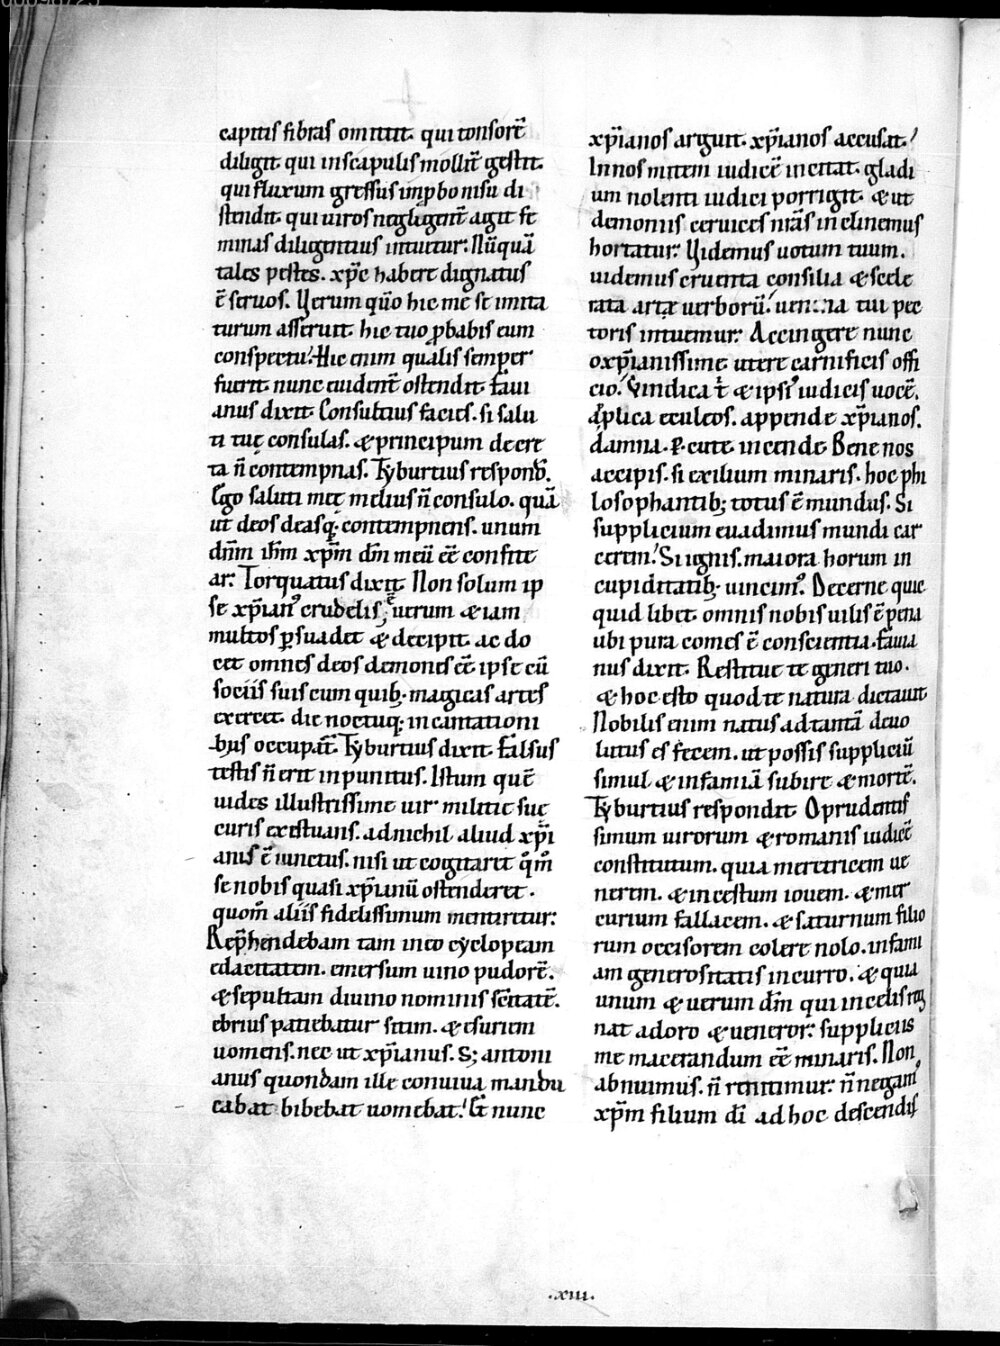 capitis fibras omittit. qui tonsorē
diligit qui inscapulis mollit̄ gestit.
qui fluxum gressus inp̱bo nisu di
stendit. qui uiros neglegent̄ agit fe
minas diligentius intuetur. Nūquā
tales pestes. xp̄e habere dignatus
ē seruos. Verum qūo hic me se imita
turum asserit. hic tuo ꝓbabis eum
conspectu. Hic enim qualis semper
fuerit. nunc euident̄ ostendit. faui
anus dixit. Consultius facies. si salu
ti tuę consulas. & principum decre
ta n̄ contempnas. Tyburtius respond̄.
Ego saluti meę melius n̄ consulo. quā
ut deos deasq; contempnens. unum
dn̄m ih̄m xp̄m dm̄ meū eē confite
ar. Torquatus dixit. Non solum ip
se xp̄ian' crudelis ē; uerum & iam
multos ꝑsuadet & decipit. ac do
cet omnes deos demones eē ipse cū
sociis suis cum quib; magicas artes
exercet. die noctuq; incantationi
bus occupat̄. Tyburtius dixit. falsus
testis n̄ erit inpunitus. Istum quē
uides illustrissime uir militie suę
curis exęstuans. ad nichil aliud xp̄i
anis ē iunctus. nisi ut cogitaret qm̄
se nobis quasi xp̄ianū ostenderet.
quom̄ aliis fidelissimum mentiretur.
Rep̄hendebam tam in eo cyclopeam
edacitatem. emersum uino pudorē.
& sepultam diuino nominis sc̄itatē.
ebrius patiebatur sitim. & esuriem
uomens. nec ut xp̄ianus. S; antoni
anus quondam ille conuiua mandu
cabat bibebat uomebat. Et nunc
xp̄ianos arguit. xp̄ianos accusat.
In nos mitem iudicē incitat. gladi
um nolenti iudici porrigit. & ut
demoniis ceruices nr̄as inclinemus
hortatur. Videmus uotum tuum.
uidemus cruenta consilia & scele
rata arte uerborū. tui pec
toris intuemur. Accingere nunc
o xp̄ianissime. utere carnificis offi
cio. Vindica t̄ & ipsi' iudicis uocē.
Applica eculeos. appende xp̄ianos.
damna. ꝑcute. incende. Bene nos
accipis. si exilium minaris. hoc phi
losophantib; totus ē mundus. Si
supplicium euadimus mundi car
cerem. Si ignis. maiora horum in
cupiditatib; uincim'. Decerne quic
quid libet. omnis nobis uilis ē pena
ubi pura comes ē conscientia. fauia
nus dixit. Restitue te generi tuo.
& hoc esto quod te natura dictauit
Nobilis enim natus ad tantā deuo
lutus es fecem. ut possis suppliciū
simul & infamiā subire & mortē.
Tyburtius respondit. O prudentis
simum uirorum & romanis iudicē
constitutum. quia meretricem ue
nerem. & incestum iouem. & mer
curium fallacem. & saturnum filio
rum occisorem colere nolo. infami
am generositatis incurro. & quia
unum & uerum dm̄ qui in celis reg
nat adoro & ueneror. suppliciis
me macerandum eē minaris. Non
abnuimus. n̄ renitimur. n̄ negam'
xp̄m filium dī ad hoc descendis
.xiii.